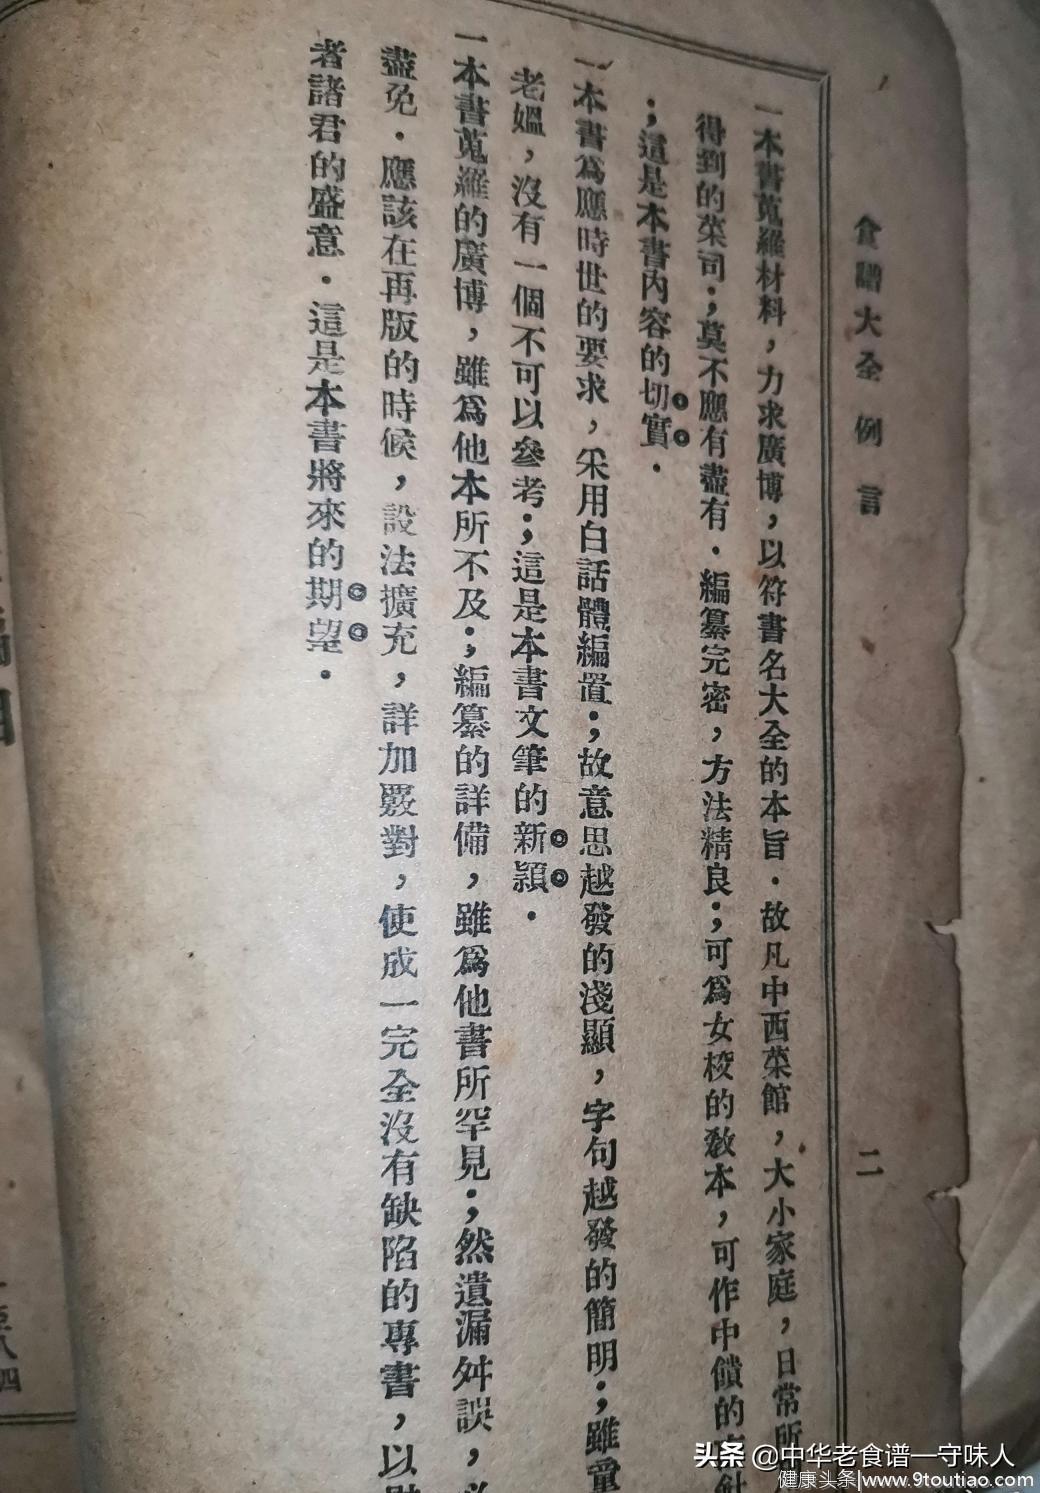 食譜大全 例言 二
一本書蒐羅材料，力求廣博，以符書名大全的本旨．故凡中西菜館，大小家庭，日常所
得到的菜司；莫不應有盡有．編纂完密，方法精良；可爲女校的教本，可作中饋的
；這是本書內容的切實．
一本書爲應時世的要求，采用白話體編置；故意思越發的淺顯，字句越發的簡明；雖童
老嫗，沒有一個不可以參考；這是本書文筆的新穎．
一本書蒐羅的廣博，雖爲他本所不及；編纂的詳備，雖爲他書所罕見；然遺漏舛誤，
盡免．應該在再版的時候，設法擴充，詳加覈對，使成一完全沒有缺陷的專書，以
者諸君的盛意．這是本書將來的期望．
头条 @中华老食谱—守味人
健康头条|www.9toutiao.com